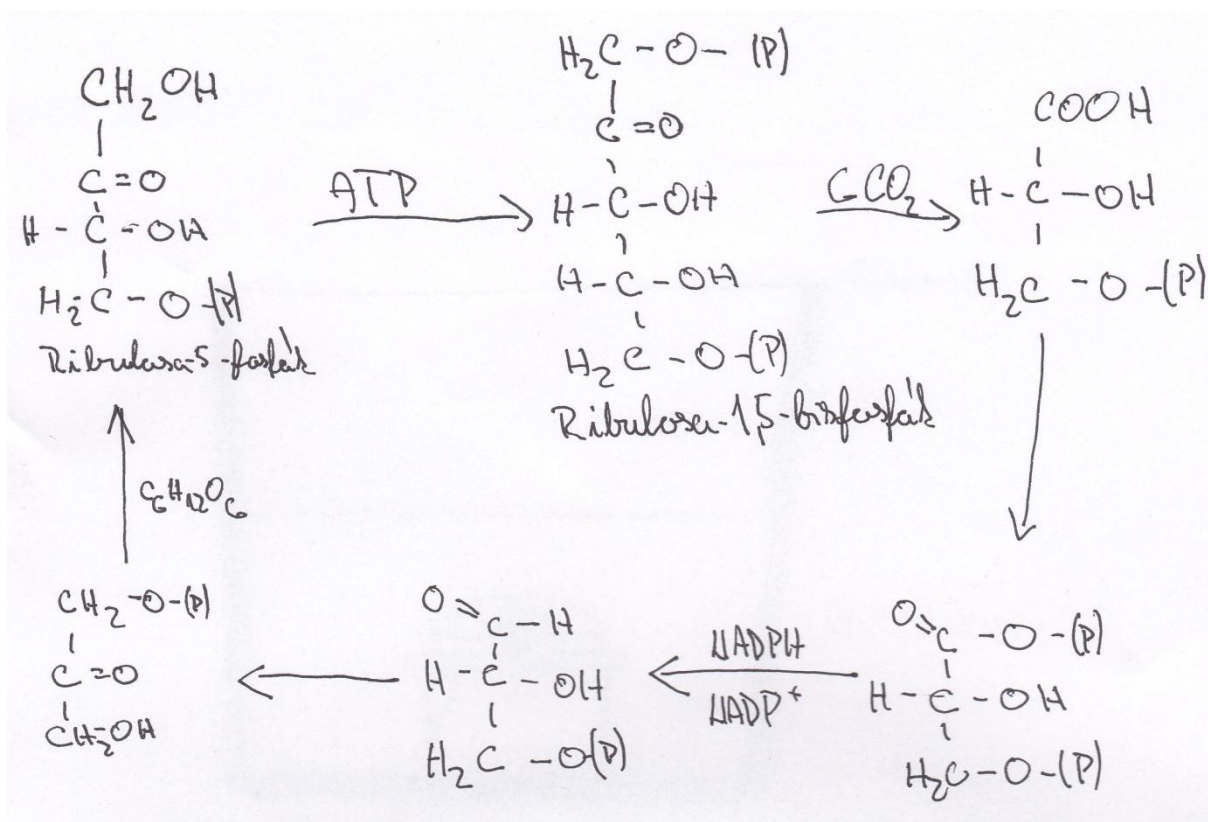 CH₂OH
C=O
H - C - OH
H₂C - O - (P)
Ribulosa-5 fosfát
ATP
H₂C - O - (P)
C=O
H - C - OH
H - C - OH
H₂C - O - (P)
Ribulosa-1,5-bisfosfát
6CO₂
COOH
H - C - OH
H₂C - O - (P)
O=C - O - (P)
H - C - OH
H₂C - O - (P)
NADPH
NADP⁺
O=C - H
H - C - OH
H₂C - O(P)
CH₂ - O - (P)
C=O
CH₂-OH
C₆H₁₂O₆